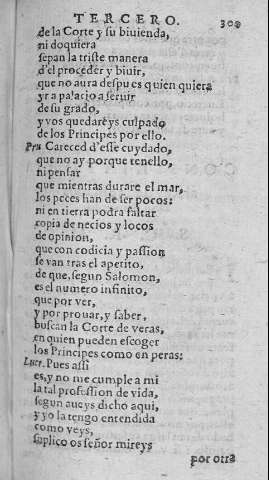 TERCERO. 309
de la Corte y su biuienda,
ni doquiera
sepan la triste manera
d'el proceder y biuir,
que no aura despues quien quiera
yr a palacio a seruir
de su grado,
y vos quedareys culpado
de los Principes por ello.
Pru Careced d'esse cuydado,
que no ay porque tenello,
ni pensar
que mientras durare el mar,
los peces han de ser pocos:
ni en tierra podra faltar
copia de necios y locos
de opinion,
que con codicia y passion
se van tras el apetito,
de que, segun Salomon,
es el numero infinito,
que por ver,
y por prouar, y saber,
buscan la Corte de veras,
en quien pueden escoger
los Principes como en peras:
Lucr. Pues assi
es, y no me cumple a mi
la tal profession de vida,
segun aueys dicho aqui,
y yo la tengo entendida
como veys,
suplico os señor mireys
por otra